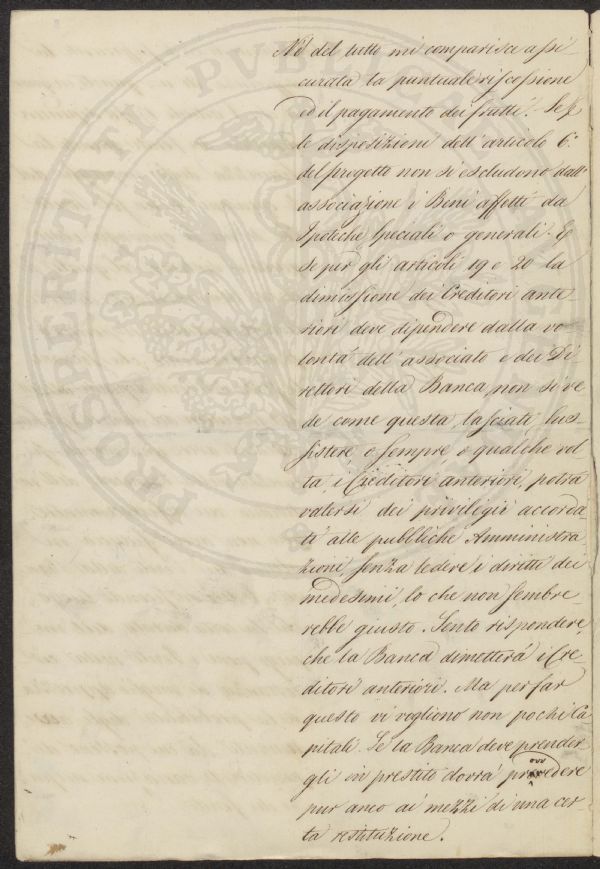 Nè del tutto mi comparisce assi
curata la puntuale riscossione
ed il pagamento dei frutti. Se p
le disposizioni dell'articolo 6°
del progetto non si escludono dall'
associazione i Beni affetti da
Ipoteche speciali o generali. E
se per gli articoli 19 e 20 la
dimissione dei Creditori ante-
riori deve dipendere dalla vo-
lontà dell'associato e dei Di
rettori della Banca, non si ve
de come questa, lasciati sus-
sistere, o sempre, o qualche vol
ta, i Creditori anteriori, potrà
valersi dei privilegi accorda
ti alle pubbliche Amministra
zioni, senza ledere i diritti dei
medesimi, lo che non sembre-
rebbe giusto. Sento rispondere,
che la Banca dimetterà i Cre-
ditori anteriori. Ma per far
questo vi vogliono non pochi Ca
pitali. Se la Banca deve prender
gli in prestito dovrà provvedere
pur anco ai mezzi di una cer-
ta restituzione.
PROSPERITATI PUBLICAE